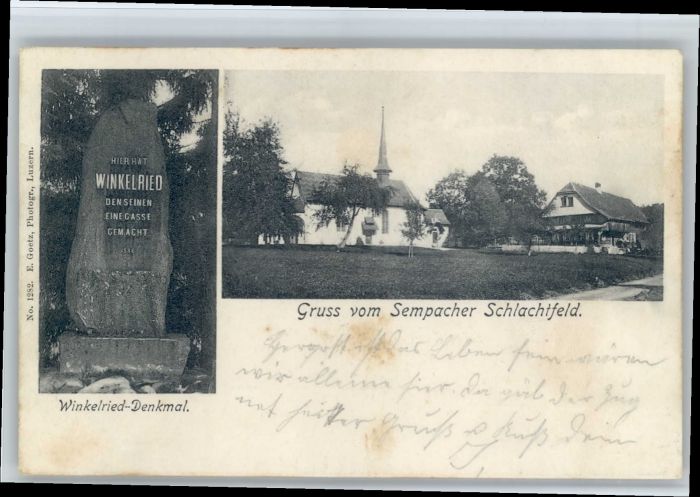 No. 1282. E. Goetz, Photogr., Luzern.
HIER HAT
WINKELRIED
DEN SEINEN
EINE GASSE
GEMACHT
Winkelried-Denkmal.
Gruss vom Sempacher Schlachtfeld.
ist das Leben hier wären
wir alleine hier. Da gab der Zug
Gruß u Kuß Dein